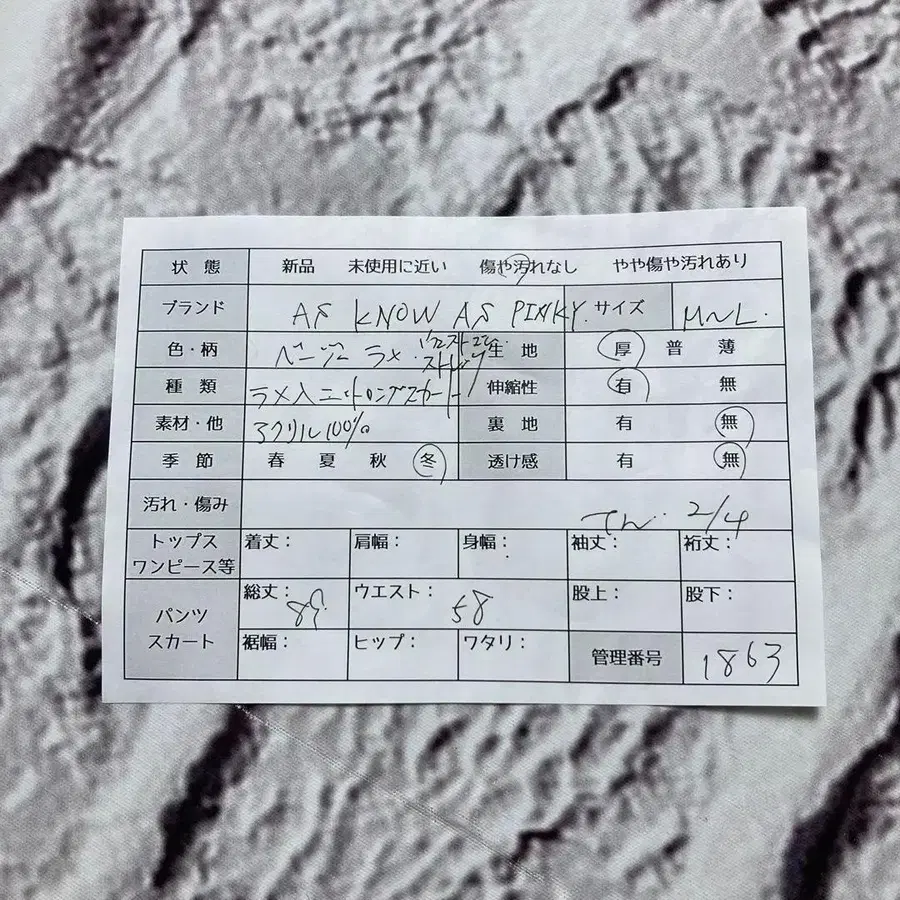 状態 新品 未使用に近い 傷や汚れなし やや傷や汚れあり
ブランド AS KNOW AS PINKY. サイズ M~L.
色・柄 ベージュ ラメ・ウエストゴム・ストレッチ 生地 厚 普 薄
種類 ラメ入ニットロングスカート 伸縮性 有 無
素材・他 アクリル100% 裏地 有 無
季節 春 夏 秋 冬 透け感 有 無
汚れ・傷み 2/4
トップス ワンピース等 着丈: 肩幅: 身幅: 袖丈: 裄丈:
パンツ スカート 総丈: ウエスト: 58 股上: 股下:
裾幅: ヒップ: ワタリ: 管理番号 1863